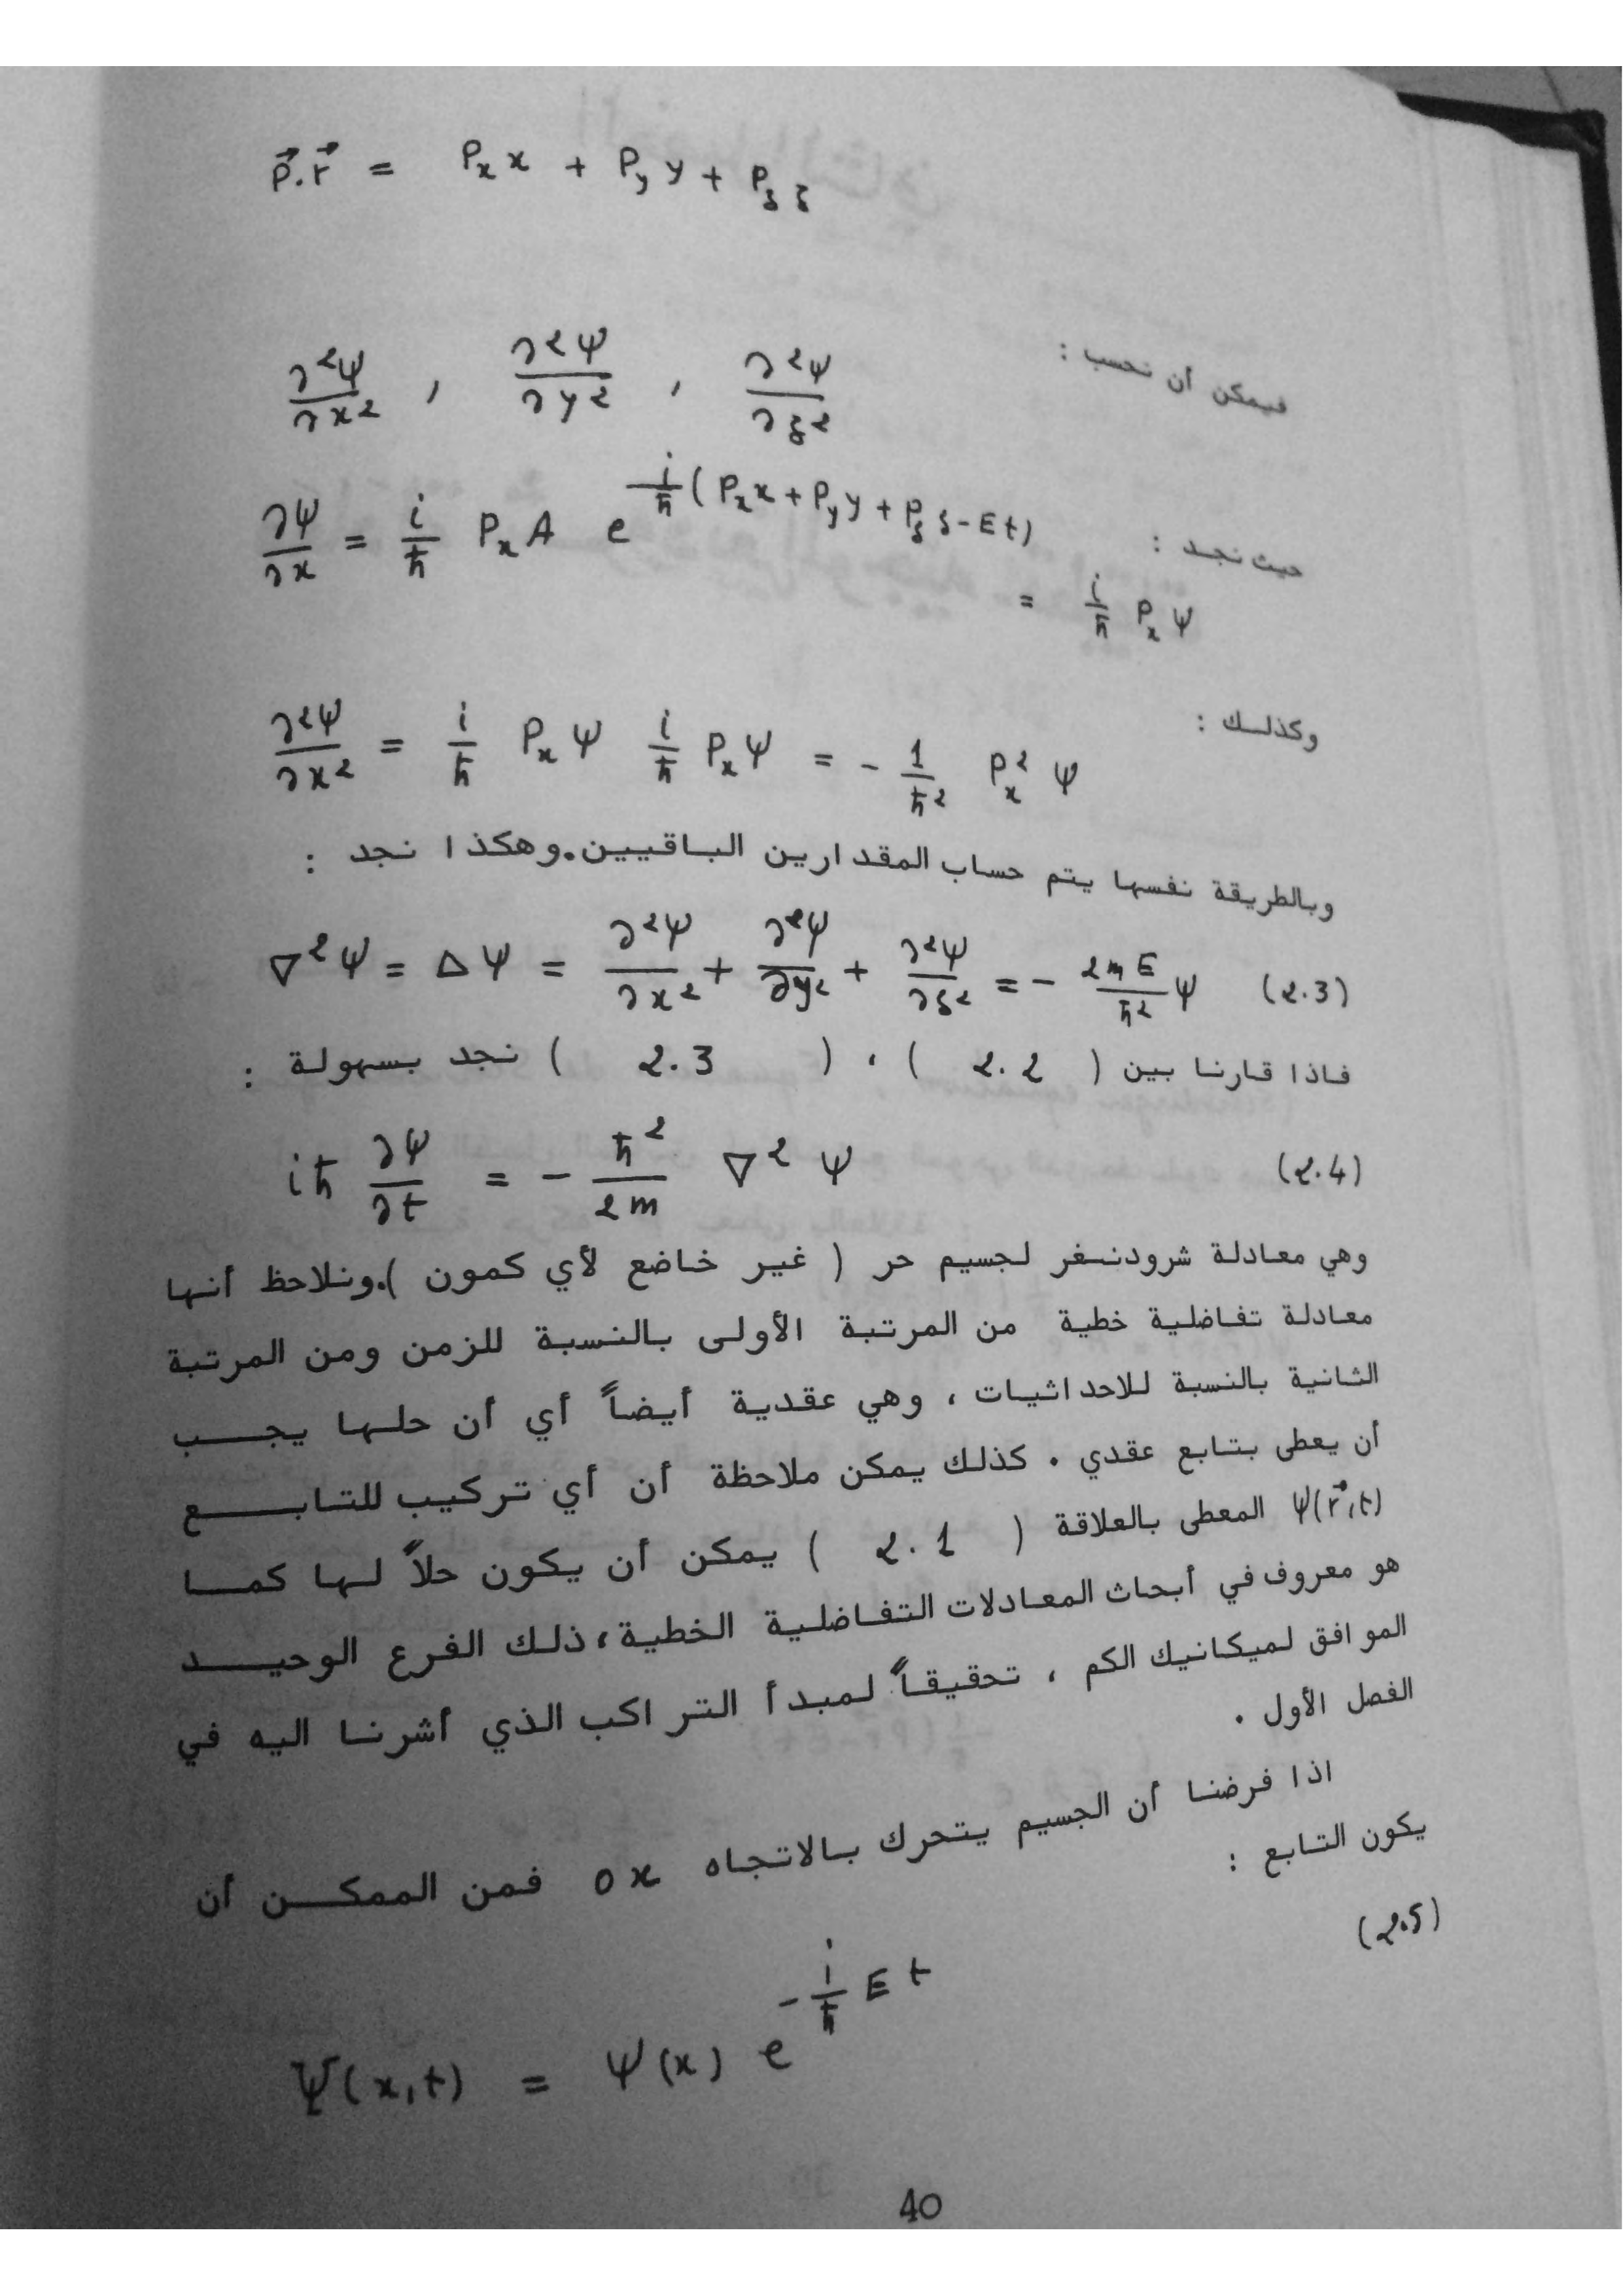 p⃗.r⃗ = Pₓ x + P_y y + P_z z
فيمكن أن نحسب :
∂²ψ/∂x² , ∂²ψ/∂y² , ∂²ψ/∂z²
حيث نجد :
∂ψ/∂x = i/ħ Pₓ A e^{i/ħ (Pₓ x + P_y y + P_z z - Et)}
= i/ħ Pₓ ψ
وكذلك :
∂²ψ/∂x² = i/ħ Pₓ ψ i/ħ Pₓ ψ = - 1/ħ² Pₓ² ψ
وبالطريقة نفسها يتم حساب المقدارين الباقيين.وهكذا نجد :
∇²ψ = Δψ = ∂²ψ/∂x² + ∂²ψ/∂y² + ∂²ψ/∂z² = - 2mE/ħ² ψ (2.3)
فاذا قارنا بين ( 2.2 ) ، ( 2.3 ) نجد بسهولة :
iħ ∂ψ/∂t = - ħ²/2m ∇² ψ (2.4)
وهي معادلة شرودنغر لجسيم حر ( غير خاضع لأي كمون ).ونلاحظ أنها
معادلة تفاضلية خطية من المرتبة الأولى بالنسبة للزمن ومن المرتبة
الثانية بالنسبة للاحداثيات ، وهي عقدية أيضاً أي أن حلها يجب
أن يعطى بتابع عقدي . كذلك يمكن ملاحظة أن أي تركيب للتابع
ψ(r⃗,t) المعطى بالعلاقة ( 2.1 ) يمكن أن يكون حلاً لها كما
هو معروف في أبحاث المعادلات التفاضلية الخطية ، ذلك الفرع الوحيد
الموافق لميكانيك الكم ، تحقيقاً لمبدأ التراكب الذي أشرنا اليه في
الفصل الأول .
اذا فرضنا أن الجسيم يتحرك بالاتجاه ox فمن الممكن أن
يكون التابع :
(2.5)
Ψ(x,t) = ψ(x) e^{- i/ħ Et}
40